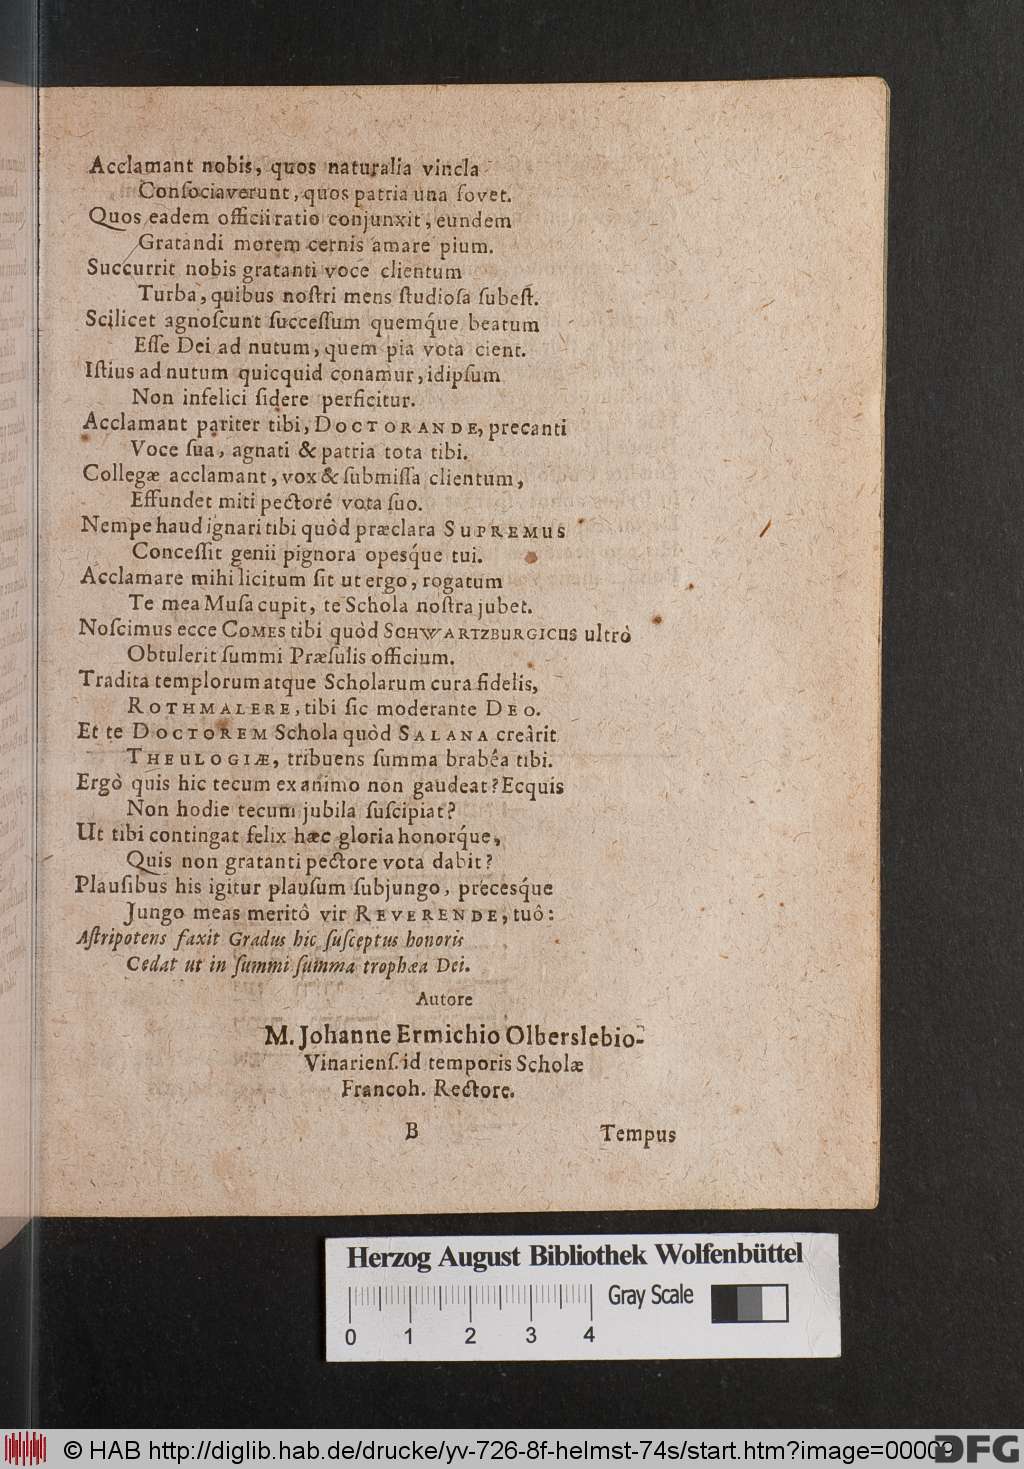 Acclamant nobis, quos naturalia vincla
Conſociaverunt, quos patria una fovet.
Quos eadem officii ratio conjunxit, eundem
Gratandi morem cernis amare pium.
Succurrit nobis gratanti voce clientum
Turba, quibus noſtri mens ſtudioſa ſubeſt.
Scilicet agnoſcunt ſucceſſum quemq́ue beatum
Eſſe Dei ad nutum, quem pia vota cient.
Iſtius ad nutum quicquid conamur, idipſum
Non infelici ſidere perficitur.
Acclamant pariter tibi, DOCTORANDE, precanti
Voce ſua, agnati & patria tota tibi.
Collegæ acclamant, vox & ſubmiſſa clientum,
Effundet miti pectoré vota ſuo.
Nempe haud ignari tibi quòd præclara SUPREMUS
Conceſſit genii pignora opesq́ue tui.
Acclamare mihi licitum ſit ut ergo, rogatum
Te mea Muſa cupit, te Schola noſtra jubet.
Noſcimus ecce COMES tibi quòd SCHWARTZBURGICUS ultrò
Obtulerit ſummi Præſulis officium.
Tradita templorum atque Scholarum cura fidelis,
ROTHMALERE, tibi ſic moderante DEO.
Et te DOCTOREM Schola quòd SALANA creârit
THEULOGIÆ, tribuens ſumma brabéa tibi.
Ergò quis hic tecum ex animo non gaudeat? Ecquis
Non hodie tecum jubila ſuſcipiat?
Ut tibi contingat felix hæc gloria honorq́ue,
Quis non gratanti pectore vota dabit?
Plauſibus his igitur plauſum ſubjungo, precesq́ue
Jungo meas meritô vir REVERENDE, tuô:
Aſtripotens faxit Gradus hic ſuſceptus honoris
Cedat ut in ſummi ſumma trophæa Dei.
Autore
M. Johanne Ermichio Olberslebio-
Vinarienſ. id temporis Scholæ
Francoh. Rectore.
B Tempus
Herzog August Bibliothek Wolfenbüttel
Gray Scale
0 1 2 3 4
© HAB http://diglib.hab.de/drucke/yv-726-8f-helmst-74s/start.htm?image=00009
DFG